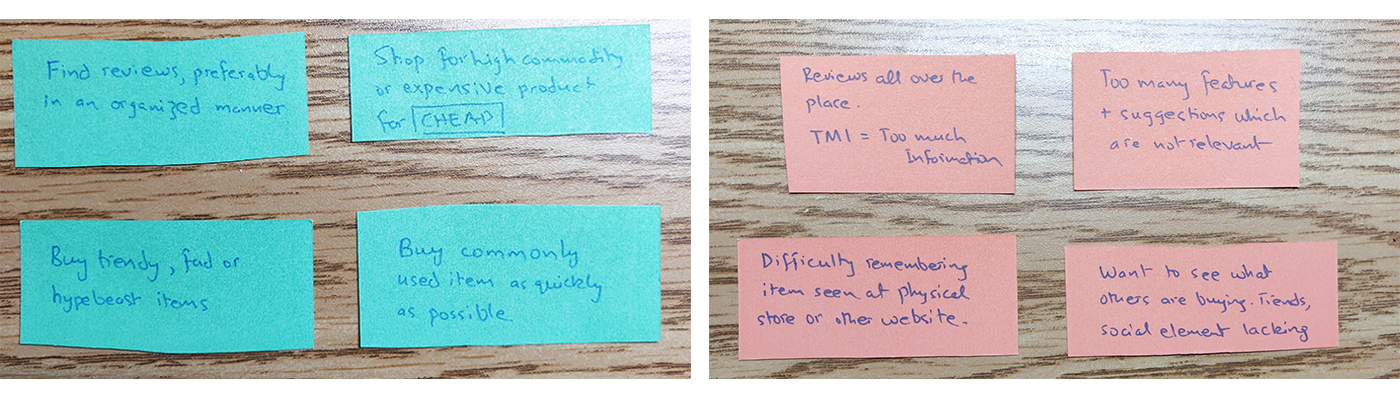 Find reviews, preferably
in an organized manner
Shop for high commodity
or expensive product
for CHEAP
Buy trendy, fad or
hypebeast items
Buy commonly
used item as quickly
as possible.
Reviews all over the
place.
TMI = Too much
Information
Too many features
+ suggestions which
are not relevant
Difficulty remembering
item seen at physical
store or other website.
Want to see what
others are buying. Trends,
social element lacking